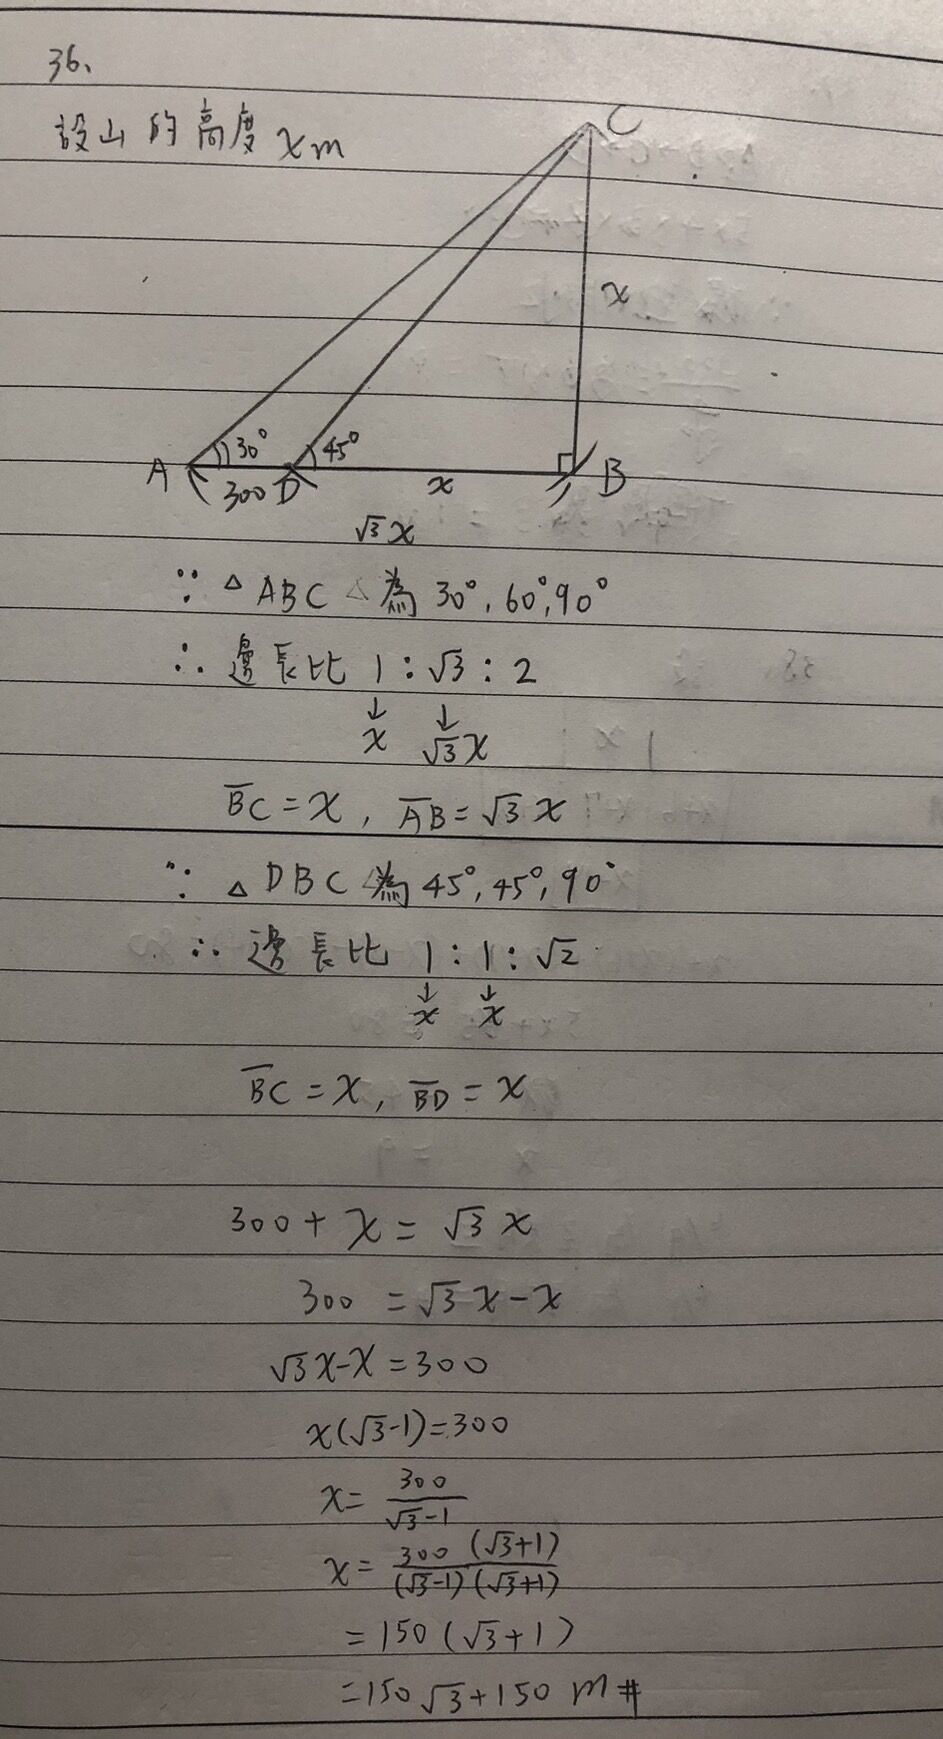 36、
設山的高度 xm
C
x
A 30° 45° B
300 D x
√3x
∵ △ABC △為 30°, 60°, 90°
∴ 邊長比 1 : √3 : 2
↓ ↓
x √3x
B̅C̅ = x , A̅B̅ = √3x
∵ △DBC △為 45°, 45°, 90°
∴ 邊長比 1 : 1 : √2
↓ ↓
x x
B̅C̅ = x , B̅D̅ = x
300 + x = √3x
300 = √3x - x
√3x - x = 300
x(√3-1) = 300
x = 300/(√3-1)
x = 300(√3+1)/(√3-1)(√3+1)
= 150(√3+1)
= 150√3 + 150 m #